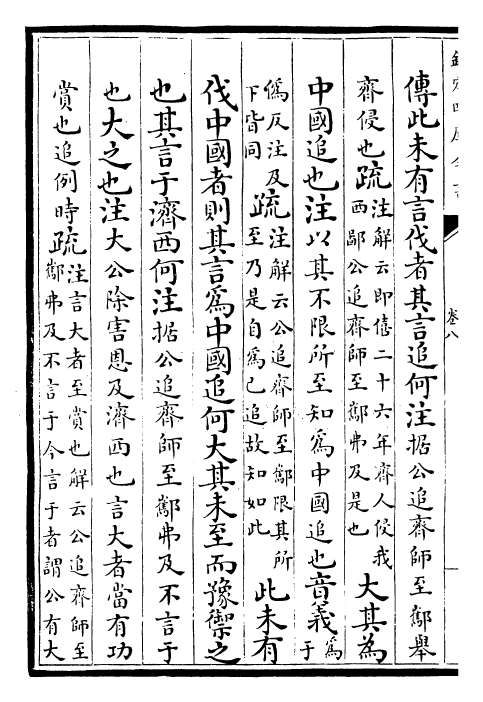 欽定四庫全書
卷八
傳此未有言伐者其言追何注据公追齊師至酅舉
齊侵也疏注解云即僖二十六年齊人侵我
西鄙公追齊師至酅弗及是也
大其為
中國追也注以其不限所至知為中國追也音義為
于
偽反注及
下皆同
疏注解云公追齊師至酅限其所
至乃是自為己追故知如此
此未有
伐中國者則其言為中國追何大其未至而豫禦之
也其言于濟西何注据公追齊師至酅弗及不言于
也大之也注大公除害恩及濟西也言大者當有功
賞也追例時疏注言大者至賞也解云公追齊師至
酅弗及不言于今言于者謂公有大